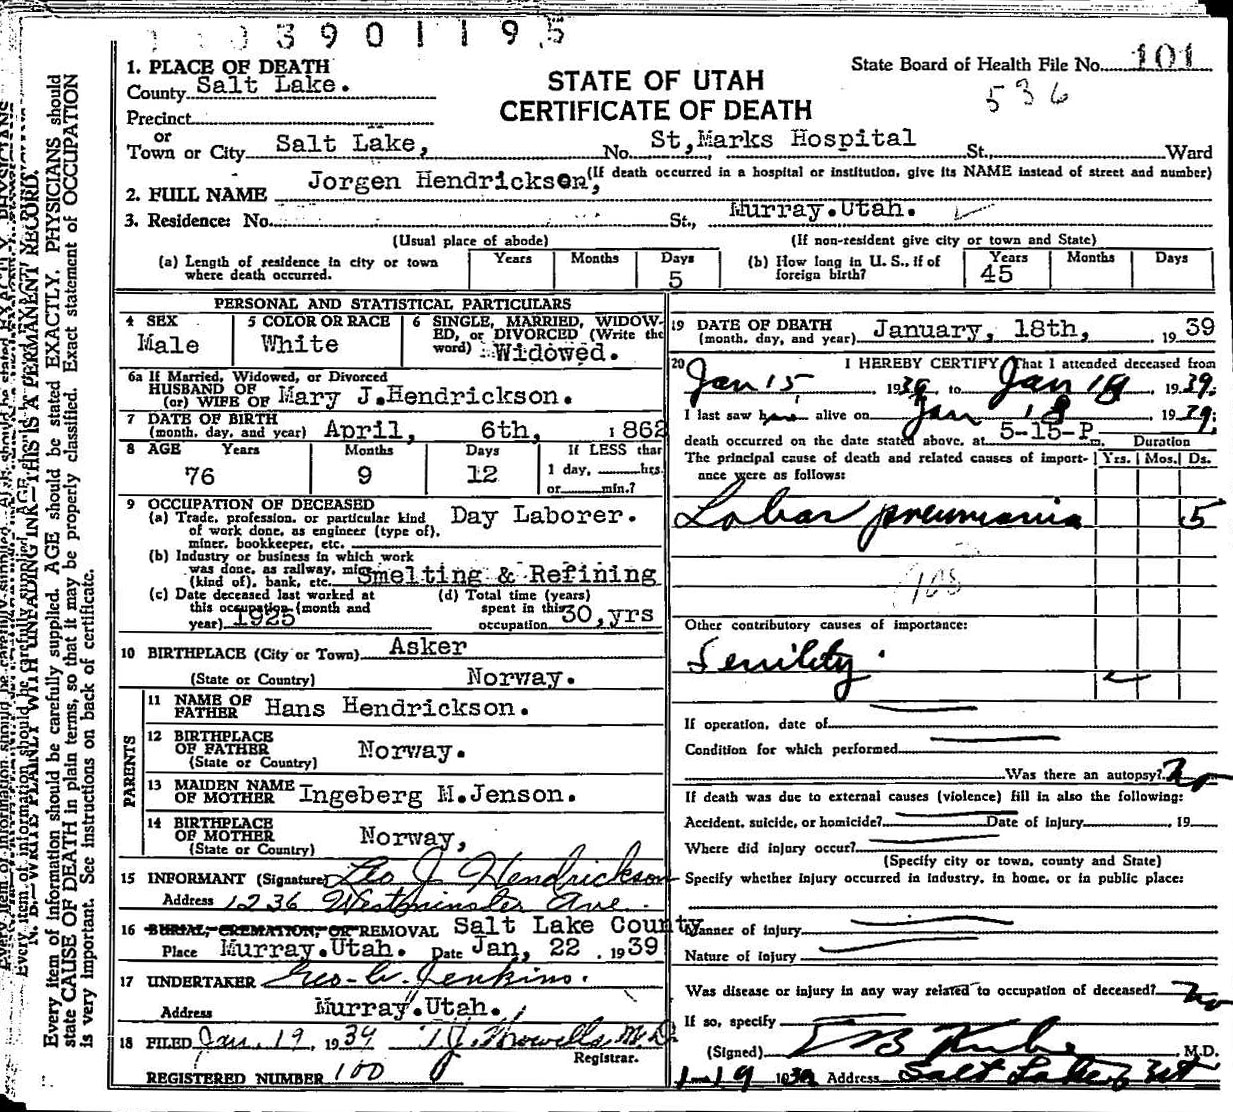 3901195
1. PLACE OF DEATH
County Salt Lake.
Precinct
or
Town or City Salt Lake,
STATE OF UTAH
CERTIFICATE OF DEATH
State Board of Health File No. 101
536
No. St,Marks Hospital St., Ward
(If death occurred in a hospital or institution, give its NAME instead of street and number)
2. FULL NAME Jorgen Hendrickson,
3. Residence: No. St., Murray.Utah.
(Usual place of abode) (If non-resident give city or town and State)
(a) Length of residence in city or town where death occurred. Years Months Days 5
(b) How long in U. S., if of foreign birth? Years 45 Months Days
PERSONAL AND STATISTICAL PARTICULARS
4 SEX Male
5 COLOR OR RACE White
6 SINGLE, MARRIED, WIDOWED, or DIVORCED (Write the word) Widowed.
6a If Married, Widowed, or Divorced
HUSBAND OF
(or) WIFE OF Mary J.Hendrickson.
7 DATE OF BIRTH
(month, day, and year) April, 6th, 1862
8 AGE Years 76 Months 9 Days 12 If LESS than 1 day, hrs. or min.?
9 OCCUPATION OF DECEASED
(a) Trade, profession, or particular kind of work done, as engineer (type of), miner, bookkeeper, etc. Day Laborer.
(b) Industry or business in which work was done, as railway, mine (kind of), bank, etc. Smelting & Refining
(c) Date deceased last worked at this occupation (month and year) 1925
(d) Total time (years) spent in this occupation 30,yrs
10 BIRTHPLACE (City or Town) Asker
(State or Country) Norway.
PARENTS
11 NAME OF FATHER Hans Hendrickson.
12 BIRTHPLACE OF FATHER (State or Country) Norway.
13 MAIDEN NAME OF MOTHER Ingeberg M.Jenson.
14 BIRTHPLACE OF MOTHER (State or Country) Norway,
15 INFORMANT (Signature) Leo J Hendrickson
Address 1236 Westminster Ave.
16 BURIAL, CREMATION, OR REMOVAL Salt Lake County
Place Murray.Utah. Date Jan, 22 . 1939
17 UNDERTAKER Geo. W. Jenkins.
Address Murray.Utah.
18 FILED Jan. 19, 1939 T.J. Howells, M.D.
Registrar.
REGISTERED NUMBER 100
19 DATE OF DEATH
(month, day, and year) January, 18th, 1939
20 I HEREBY CERTIFY, That I attended deceased from
Jan 15 1939 to Jan 18, 1939.
I last saw him alive on Jan 18 1939;
death occurred on the date stated above, at 5-15-P m.
Duration
The principal cause of death and related causes of importance were as follows: Yrs. Mos. Ds.
Lobar pneumonia 5
108
Other contributory causes of importance:
Senility.
If operation, date of
Condition for which performed
Was there an autopsy? No
If death was due to external causes (violence) fill in also the following:
Accident, suicide, or homicide? Date of injury , 19
Where did injury occur?
(Specify city or town, county and State)
Specify whether injury occurred in industry, in home, or in public place:
Manner of injury
Nature of injury
Was disease or injury in any way related to occupation of deceased? No
If so, specify
(Signed) M.D.
19 1939 Address Salt Lake
N. B.—WRITE PLAINLY WITH UNFADING INK—THIS IS A PERMANENT RECORD.
Every item of information should be carefully supplied. AGE should be stated EXACTLY. PHYSICIANS should
state CAUSE OF DEATH in plain terms, so that it may be properly classified. Exact statement of OCCUPATION
is very important. See instructions on back of certificate.